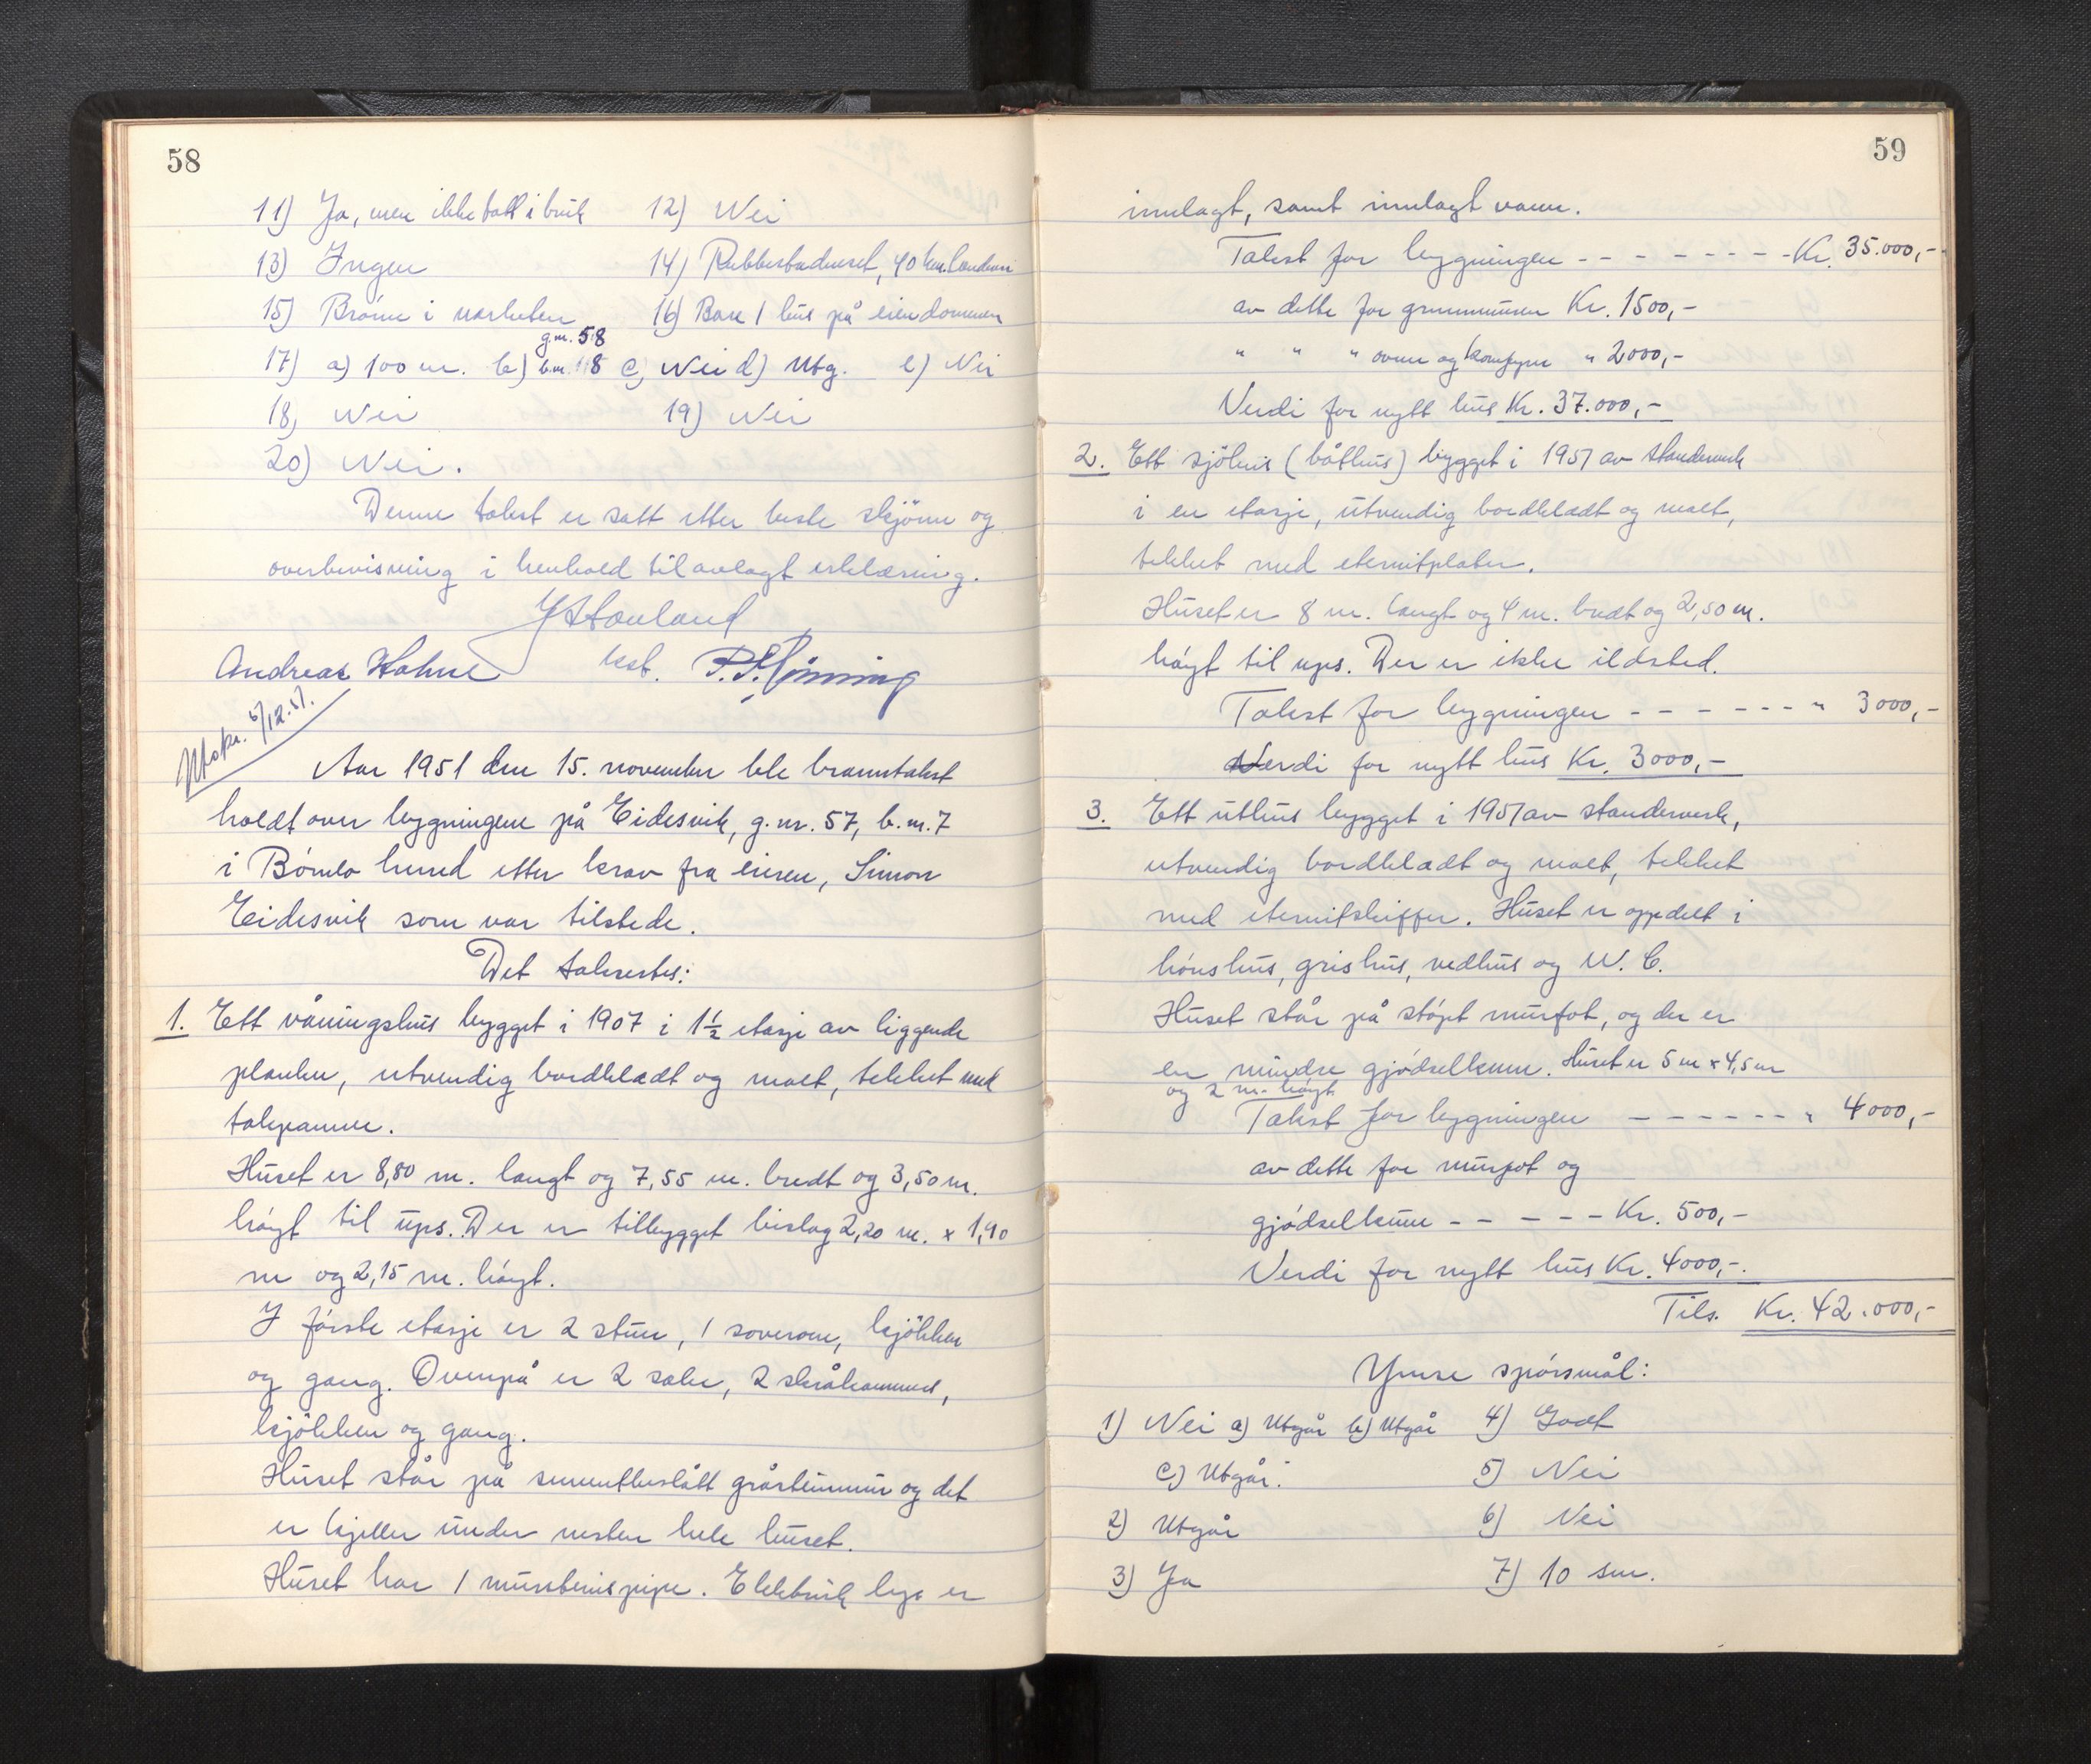 58
11) Ja, men ikke tatt i bruk 12) Nei
13) Ingen 14) Rubbestadneset, 40 km. landvei
15) Brönn i nærheten 16) Bare 1 hus på eiendommen
g.nr. 58
17) a) 100 m. b) b.nr. 118 c) Nei d) Utg. e) Nei
18) Nei 19) Nei
20) Nei.
Denne takst er satt etter beste skjönn og
overbevisning i henhold til avlagt erklæring.
Andreas Hahne
lest.
Utskr. 5/12.51.
Aar 1951 den 15. november ble branntakst
holdt over bygningene på Eidesvik, g.nr. 57, b.nr. 7
i Bömlo herred etter krav fra eieren, Simon
Eidesvik som var tilstede.
Det takseres:
1. Ett våningshus bygget i 1907 i 1½ etasje av liggende
planker, utvendig bordkledt og malt, tekket med
takpanner.
Huset er 8,80 m. langt og 7,55 m. bredt og 3,50 m.
höyt til ups. Der er tilbygget bislag 2,20 m. x 1,90
m og 2,15 m. höyt.
I förste etasje er 2 stuer, 1 soverom, kjökken
og gang. Ovenpå er 2 saler, 2 skråkammers,
kjökken og gang.
Huset står på sementbeslått gråsteinmur og det
er kjeller under nesten hele huset.
Huset har 1 mursteinspipe. Elektrisk lys er
59
innlagt, samt innlagt vann.
Takst for bygningen - - - - - - - Kr. 35.000,-
av dette for grunnmuren Kr. 1500,-
" " " ovner og komfyrer " 2000,-
Verdi for nytt hus Kr. 37.000,-
2. Ett sjöhus (båthus) bygget i 1951 av standerverk
i en etasje, utvendig bordkledt og malt,
tekket med eternitplater.
Huset er 8 m. langt og 4 m. bredt og 2,50 m.
höyt til ups. Der er ikke ildsted.
Takst for bygningen - - - - - - " 3000,-
Verdi for nytt hus Kr. 3000,-
3. Ett uthus bygget i 1951 av standerverk,
utvendig bordkledt og malt, tekket
med eternitskiffer. Huset er oppdelt i
hönshus, grishus, vedhus og W.C.
Huset står på stöpt murfot, og der er
en mindre gjödselkum. Huset er 5 m x 4,5 m
og 2 m. höyt
Takst for bygningen - - - - - - " 4000,-
av dette for murfot og
gjödselkum - - - - - Kr. 500,-
Verdi for nytt hus Kr. 4000,-.
Tils. Kr. 42.000,-
Ymse spörsmål:
1) Nei a) Utgår b) Utgår 4) Godt
c) Utgår. 5) Nei
2) Utgår 6) Nei
3) Ja 7) 10 sm.